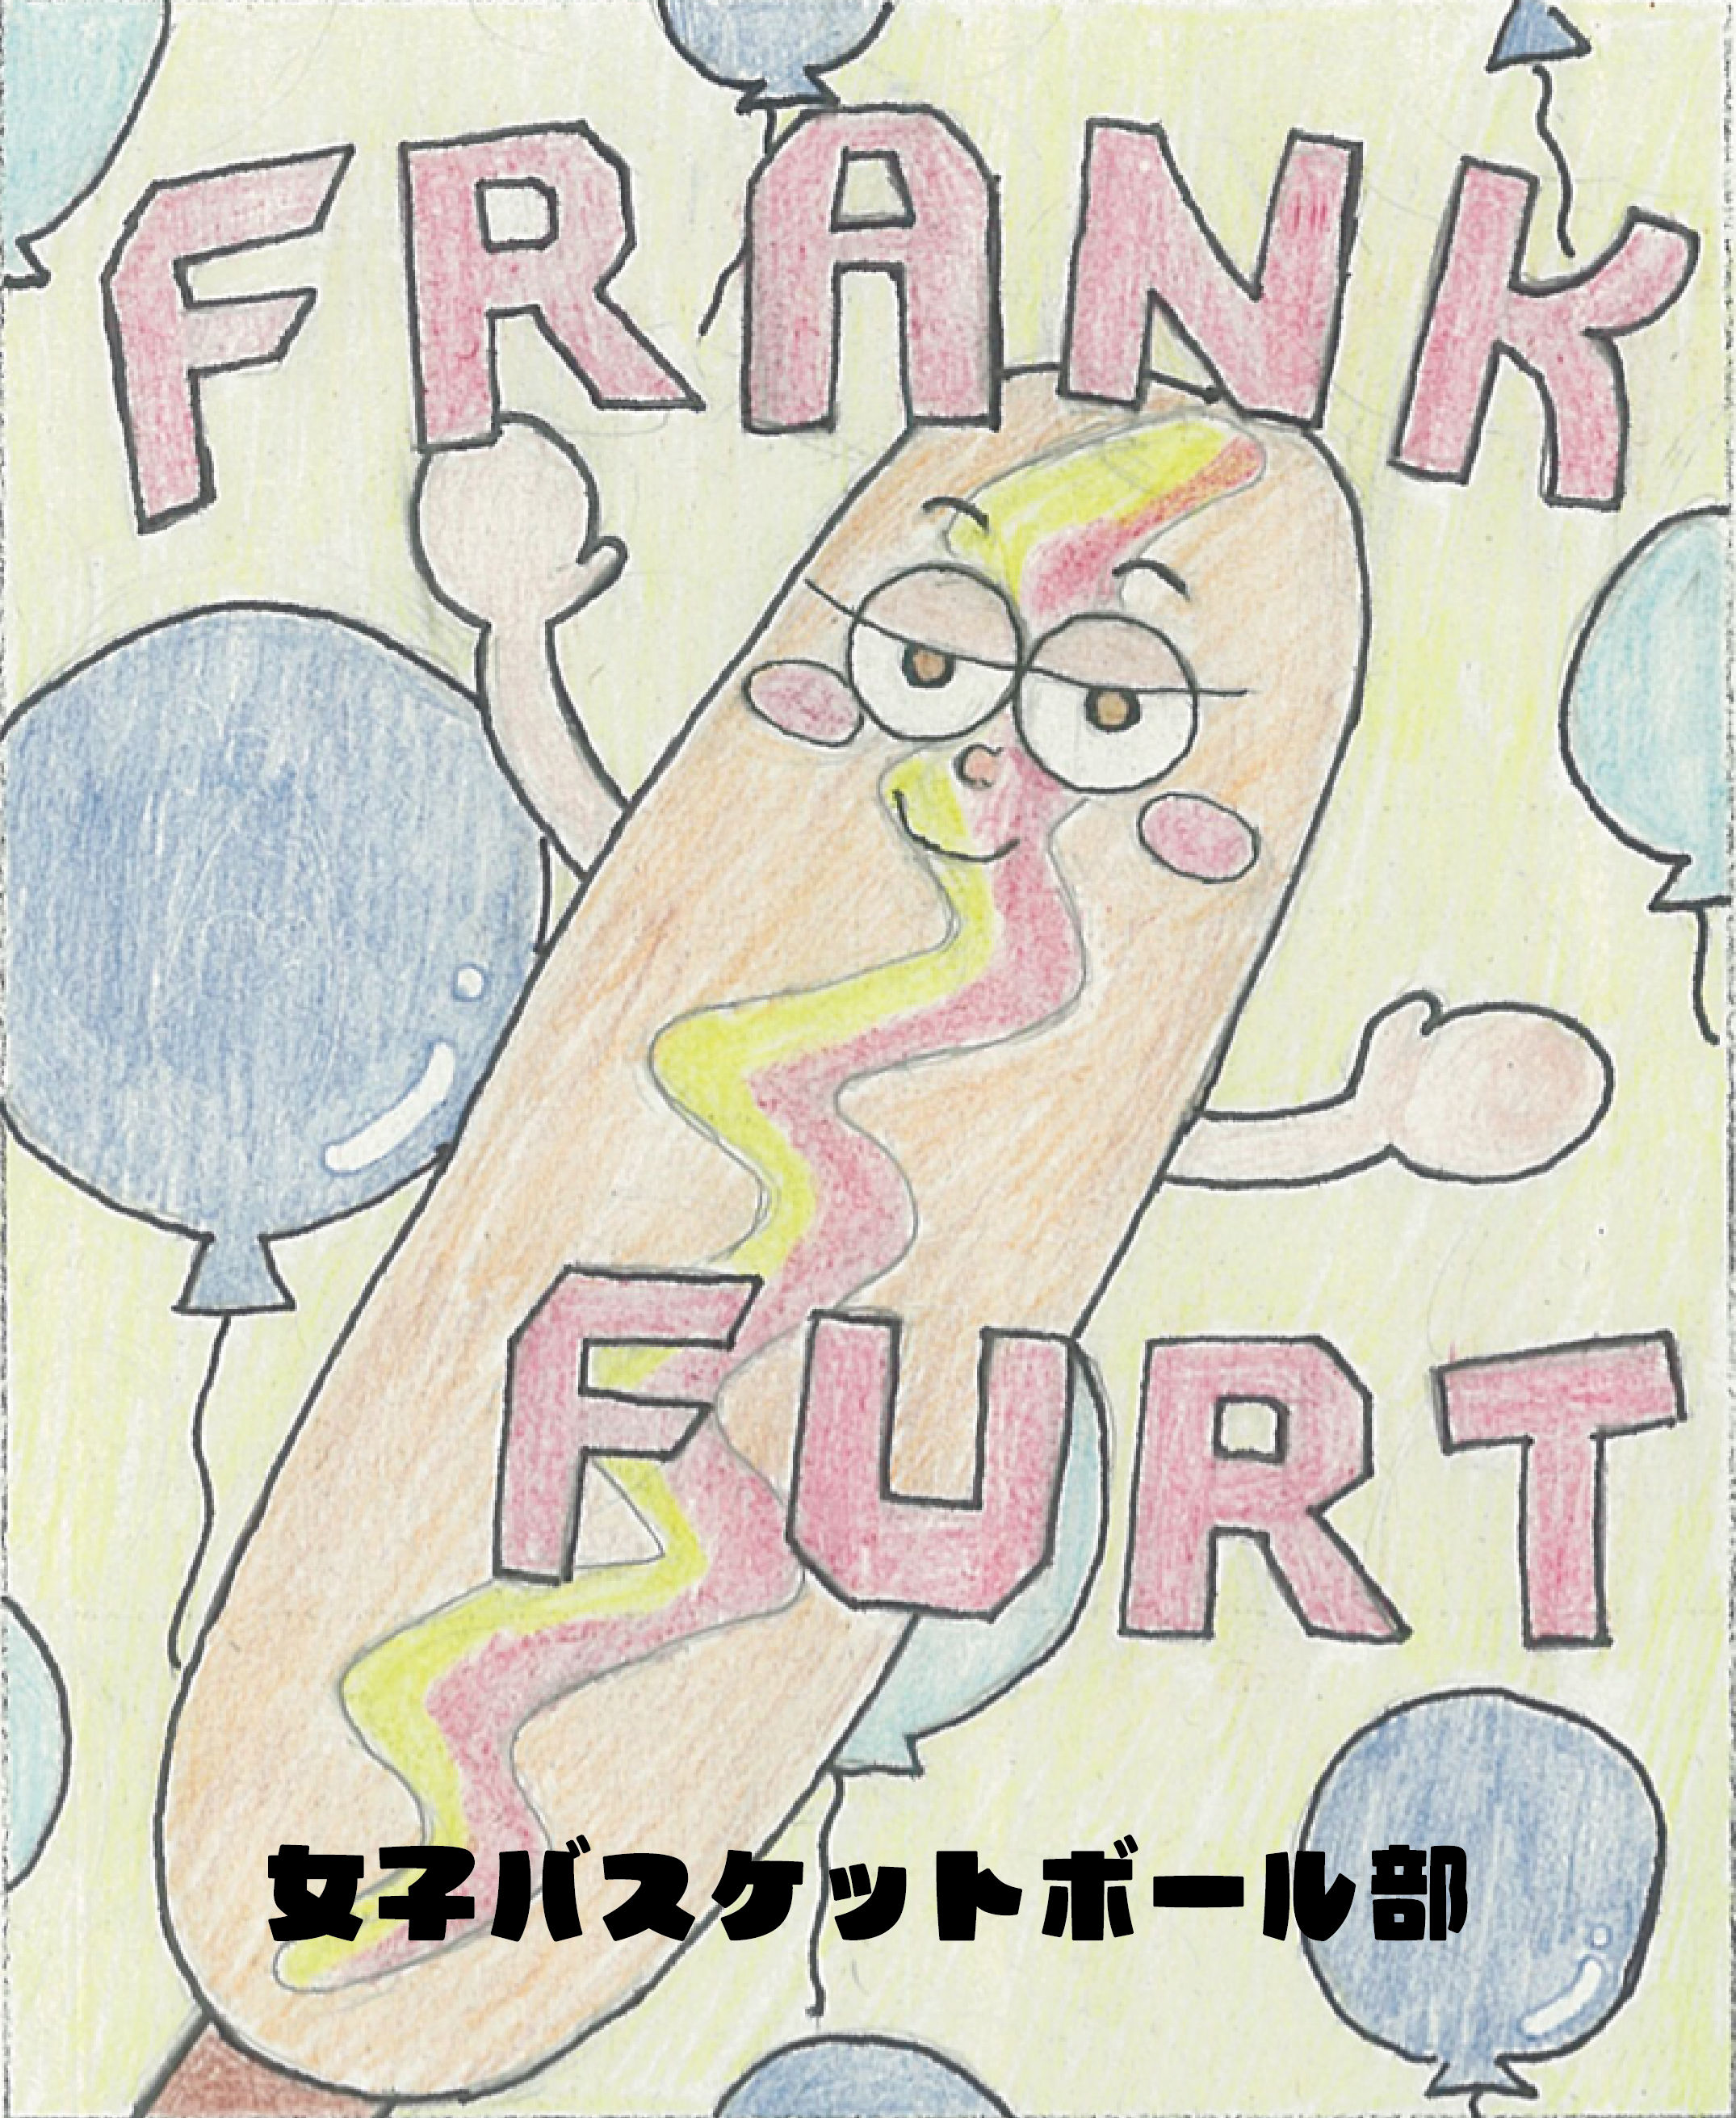 FRANK
FURT
女子バスケットボール部